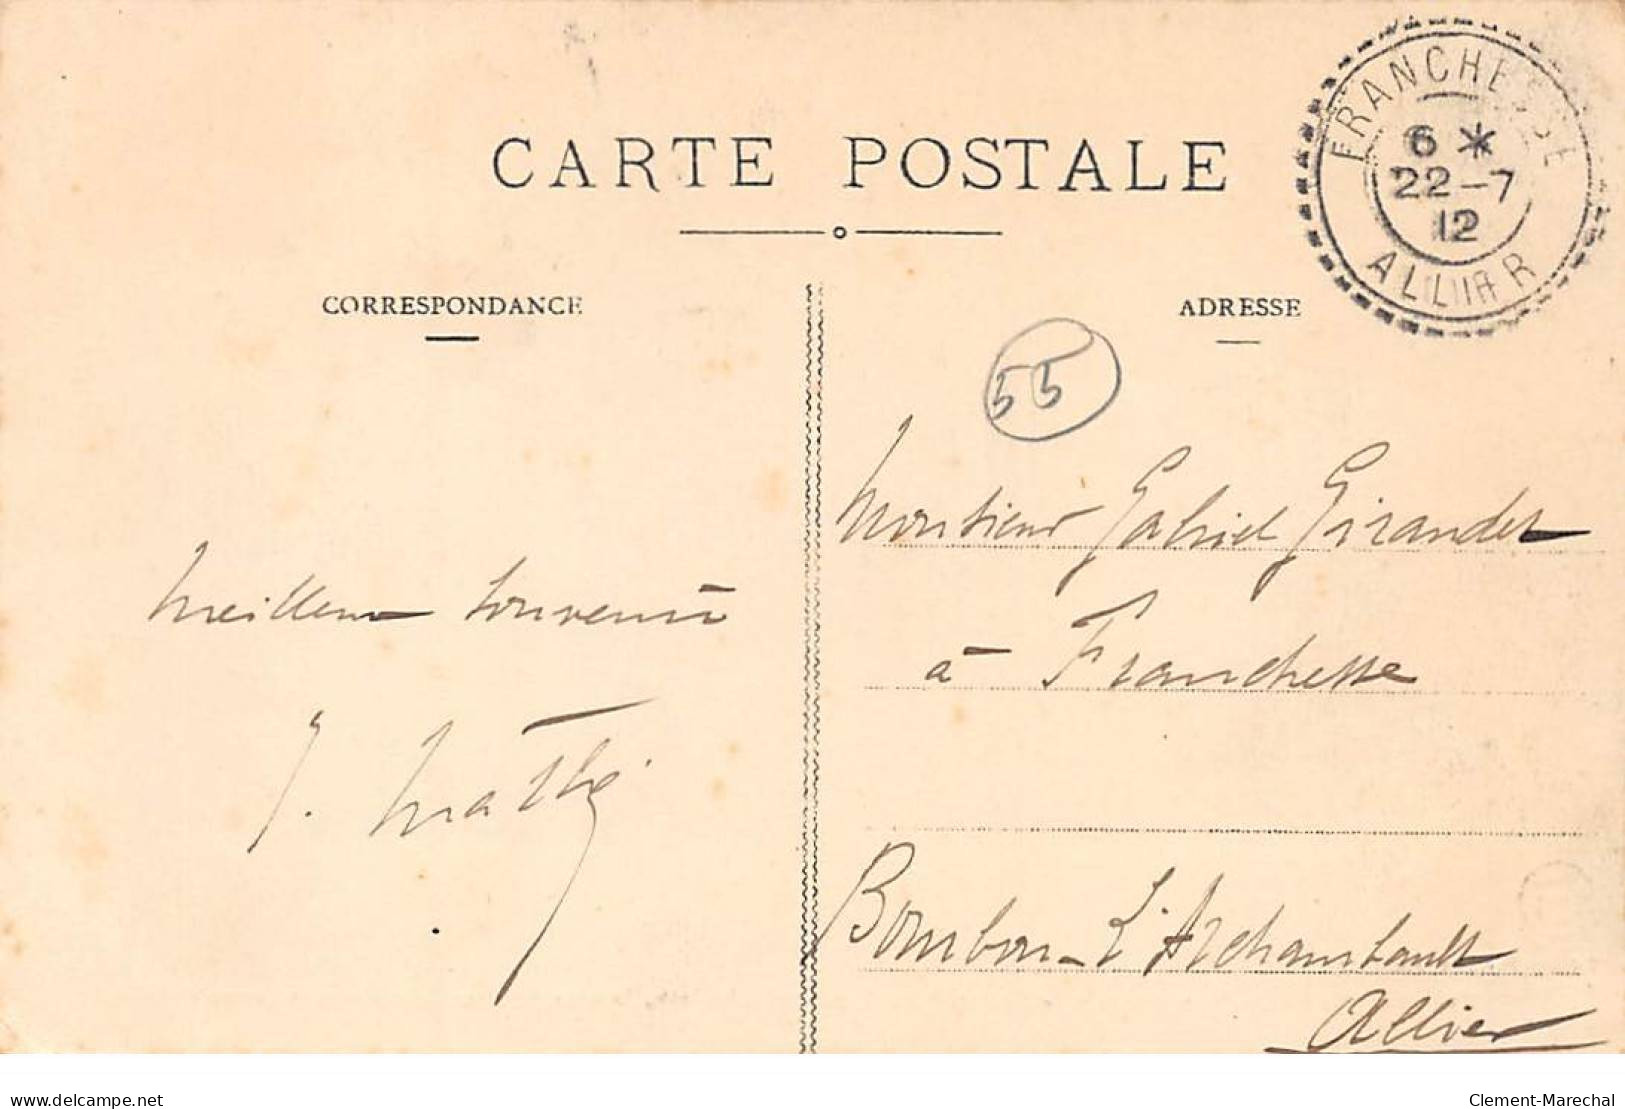 FRANCHESSE
6 *
22-7
12
ALLIER
CARTE POSTALE
CORRESPONDANCE
ADRESSE
55
Monsieur Gabriel Girandet
à Franchesse
Meilleur souvenir
J. Mathé
Bourbon-L'Archambault
Allier
www.delcampe.net
Clement-Marechal